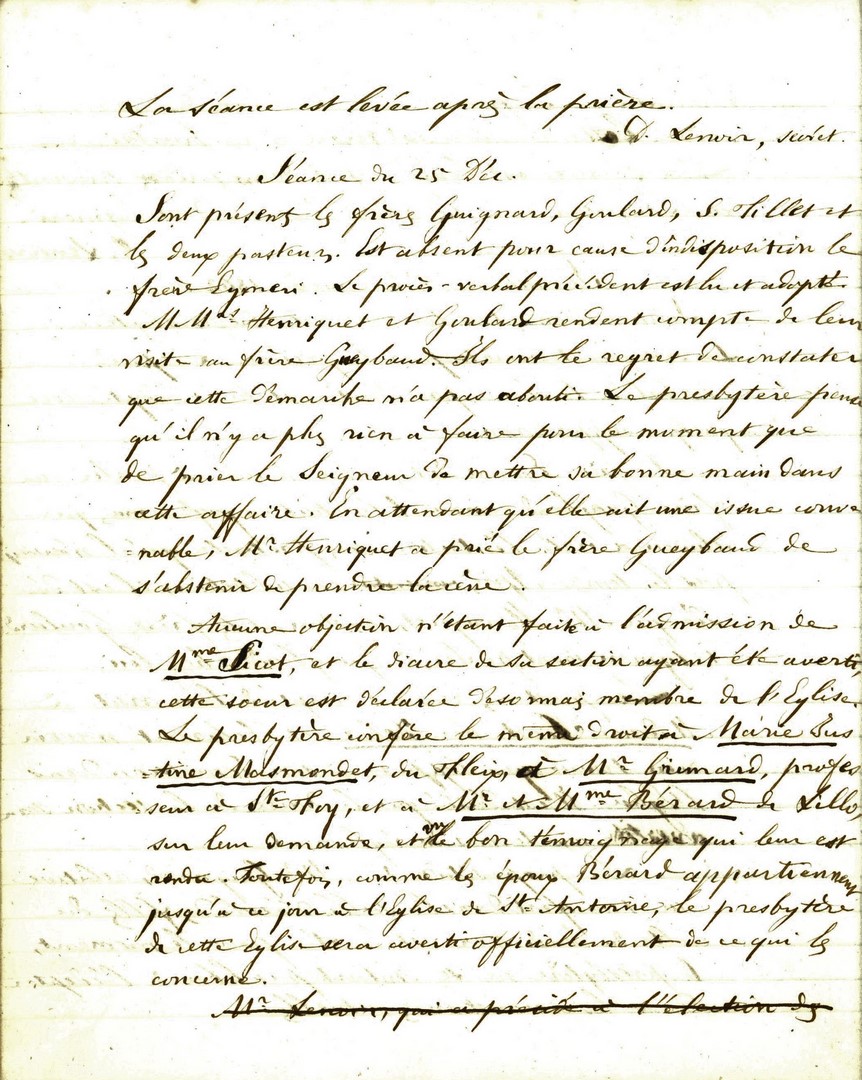 La séance est levée après la prière.
D. Lenoir, secret.
Séance du 25 Déc.
Sont présents les frères Guignard, Goulard, S. Tillet et
les deux pasteurs. Est absent pour cause d'indisposition le
frère Eymeri. Le procès-verbal précédent est lu et adopté.
MMrs Henriquet et Goulard rendent compte de leur
visite au frère Gueybaud. Ils ont le regret de constater
que cette démarche n'a pas abouti. Le presbytère pense
qu'il n'y a plus rien à faire pour le moment que
de prier le Seigneur de mettre sa bonne main dans
cette affaire. En attendant qu'elle ait une issue conve
=nable, Mr. Henriquet a prié le frère Gueybaud de
s'abstenir de prendre la cène.
Aucune objection n'étant faite à l'admission de
Mme Picot, et le diacre de sa section ayant été averti,
cette soeur est déclarée désormais membre de l'Eglise.
Le presbytère confère le même droit à Marie Jus
=tine Masmondet, du Fleix, à Mr. Grimard, profes
seur à Ste Foy, et à Mr. et Mme Bérard de Lillo,
sur leur demande, et vu le bon témoignage qui leur est
rendu. Toutefois, comme les époux Bérard appartiennent
jusqu'à ce jour à l'Eglise de St. Antoine, le presbytère
de cette Eglise sera averti officiellement de ce qui les
concerne.
Mr. Lenoir, qui a présidé à l'élection des